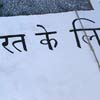 रत के लि